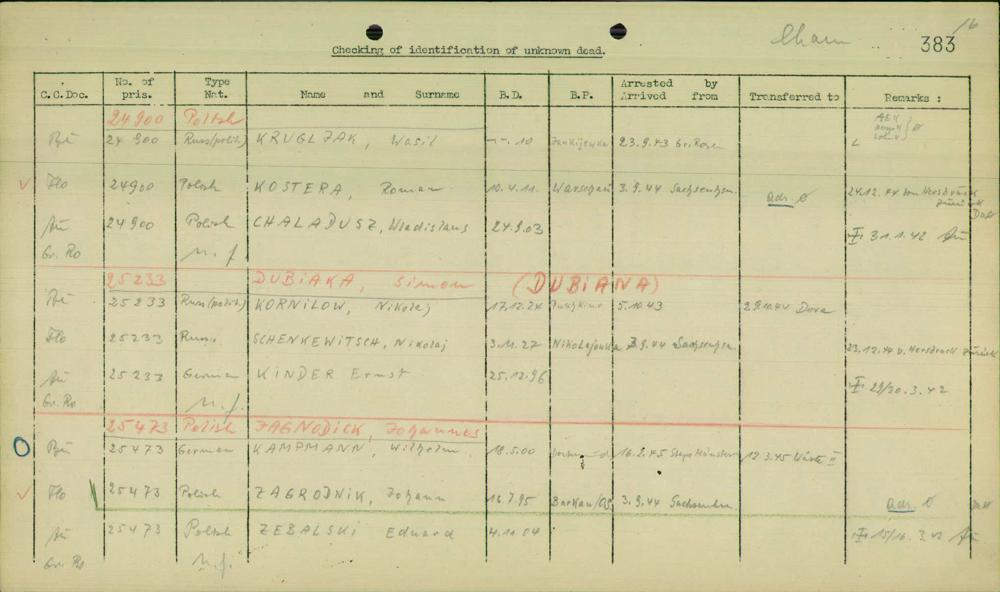 Cham
16
383
Checking of identification of unknown dead.
C.C.Doc. No. of pris. Type Nat. Name and Surname B.D. B.P. Arrested by Arrived from Transferred to Remarks :
24900 Polish
24 900 Russ(polit.) KRUGLJAK, Wasil -.-.10 23.9.43 Gr.Rosen
Flo 24900 Polish KOSTERA, Roman 10.4.11. Warschau 3.9.44 Sachsenhsn. adr. ø 24.12.44 von Hersbruck zurück
Au 24900 Polish CHALADUSZ, Wladislaus 24.9.03 31.1.42 Au
Gr. Ro n.f.
25233 DUBIAKA, Simon (DUBIANA)
25233 Russ(polit.) KORNILOW, Nikolaj 17.12.24 Puschkino 5.10.43 Dora
Flo 25233 Russ. SCHENKEWITSCH, Nikolaj 3.11.27 Nikolajewka 3.9.44 Sachsenhsn. 23.12.44 v. Hersbruck zurück
Au 25233 German KINDER Ernst 25.12.96 29/30.3.42
Gr. Ro n.f.
25473 Polish JAGNODICK, Johannes
25473 German KAMPMANN, Wilhelm 18.5.00 16.2.45 Stapo Münster 12.3.45
Flo 25473 Polish ZAGRODNIK, Johann 16.7.95 3.9.44 adr. ø
Au 25473 Polish ZEBALSKI Eduard 4.10.04 15/16.3.42 Au
Gr. Ro n.f.